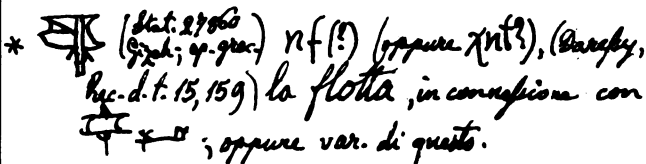 * (Stat. 27860
Gizeh; ep. grec.) nf (?) (oppure χnt?), (Daressy,
Rec. d. t. 15, 159) la flotta, in connessione con
; oppure var. di questo.